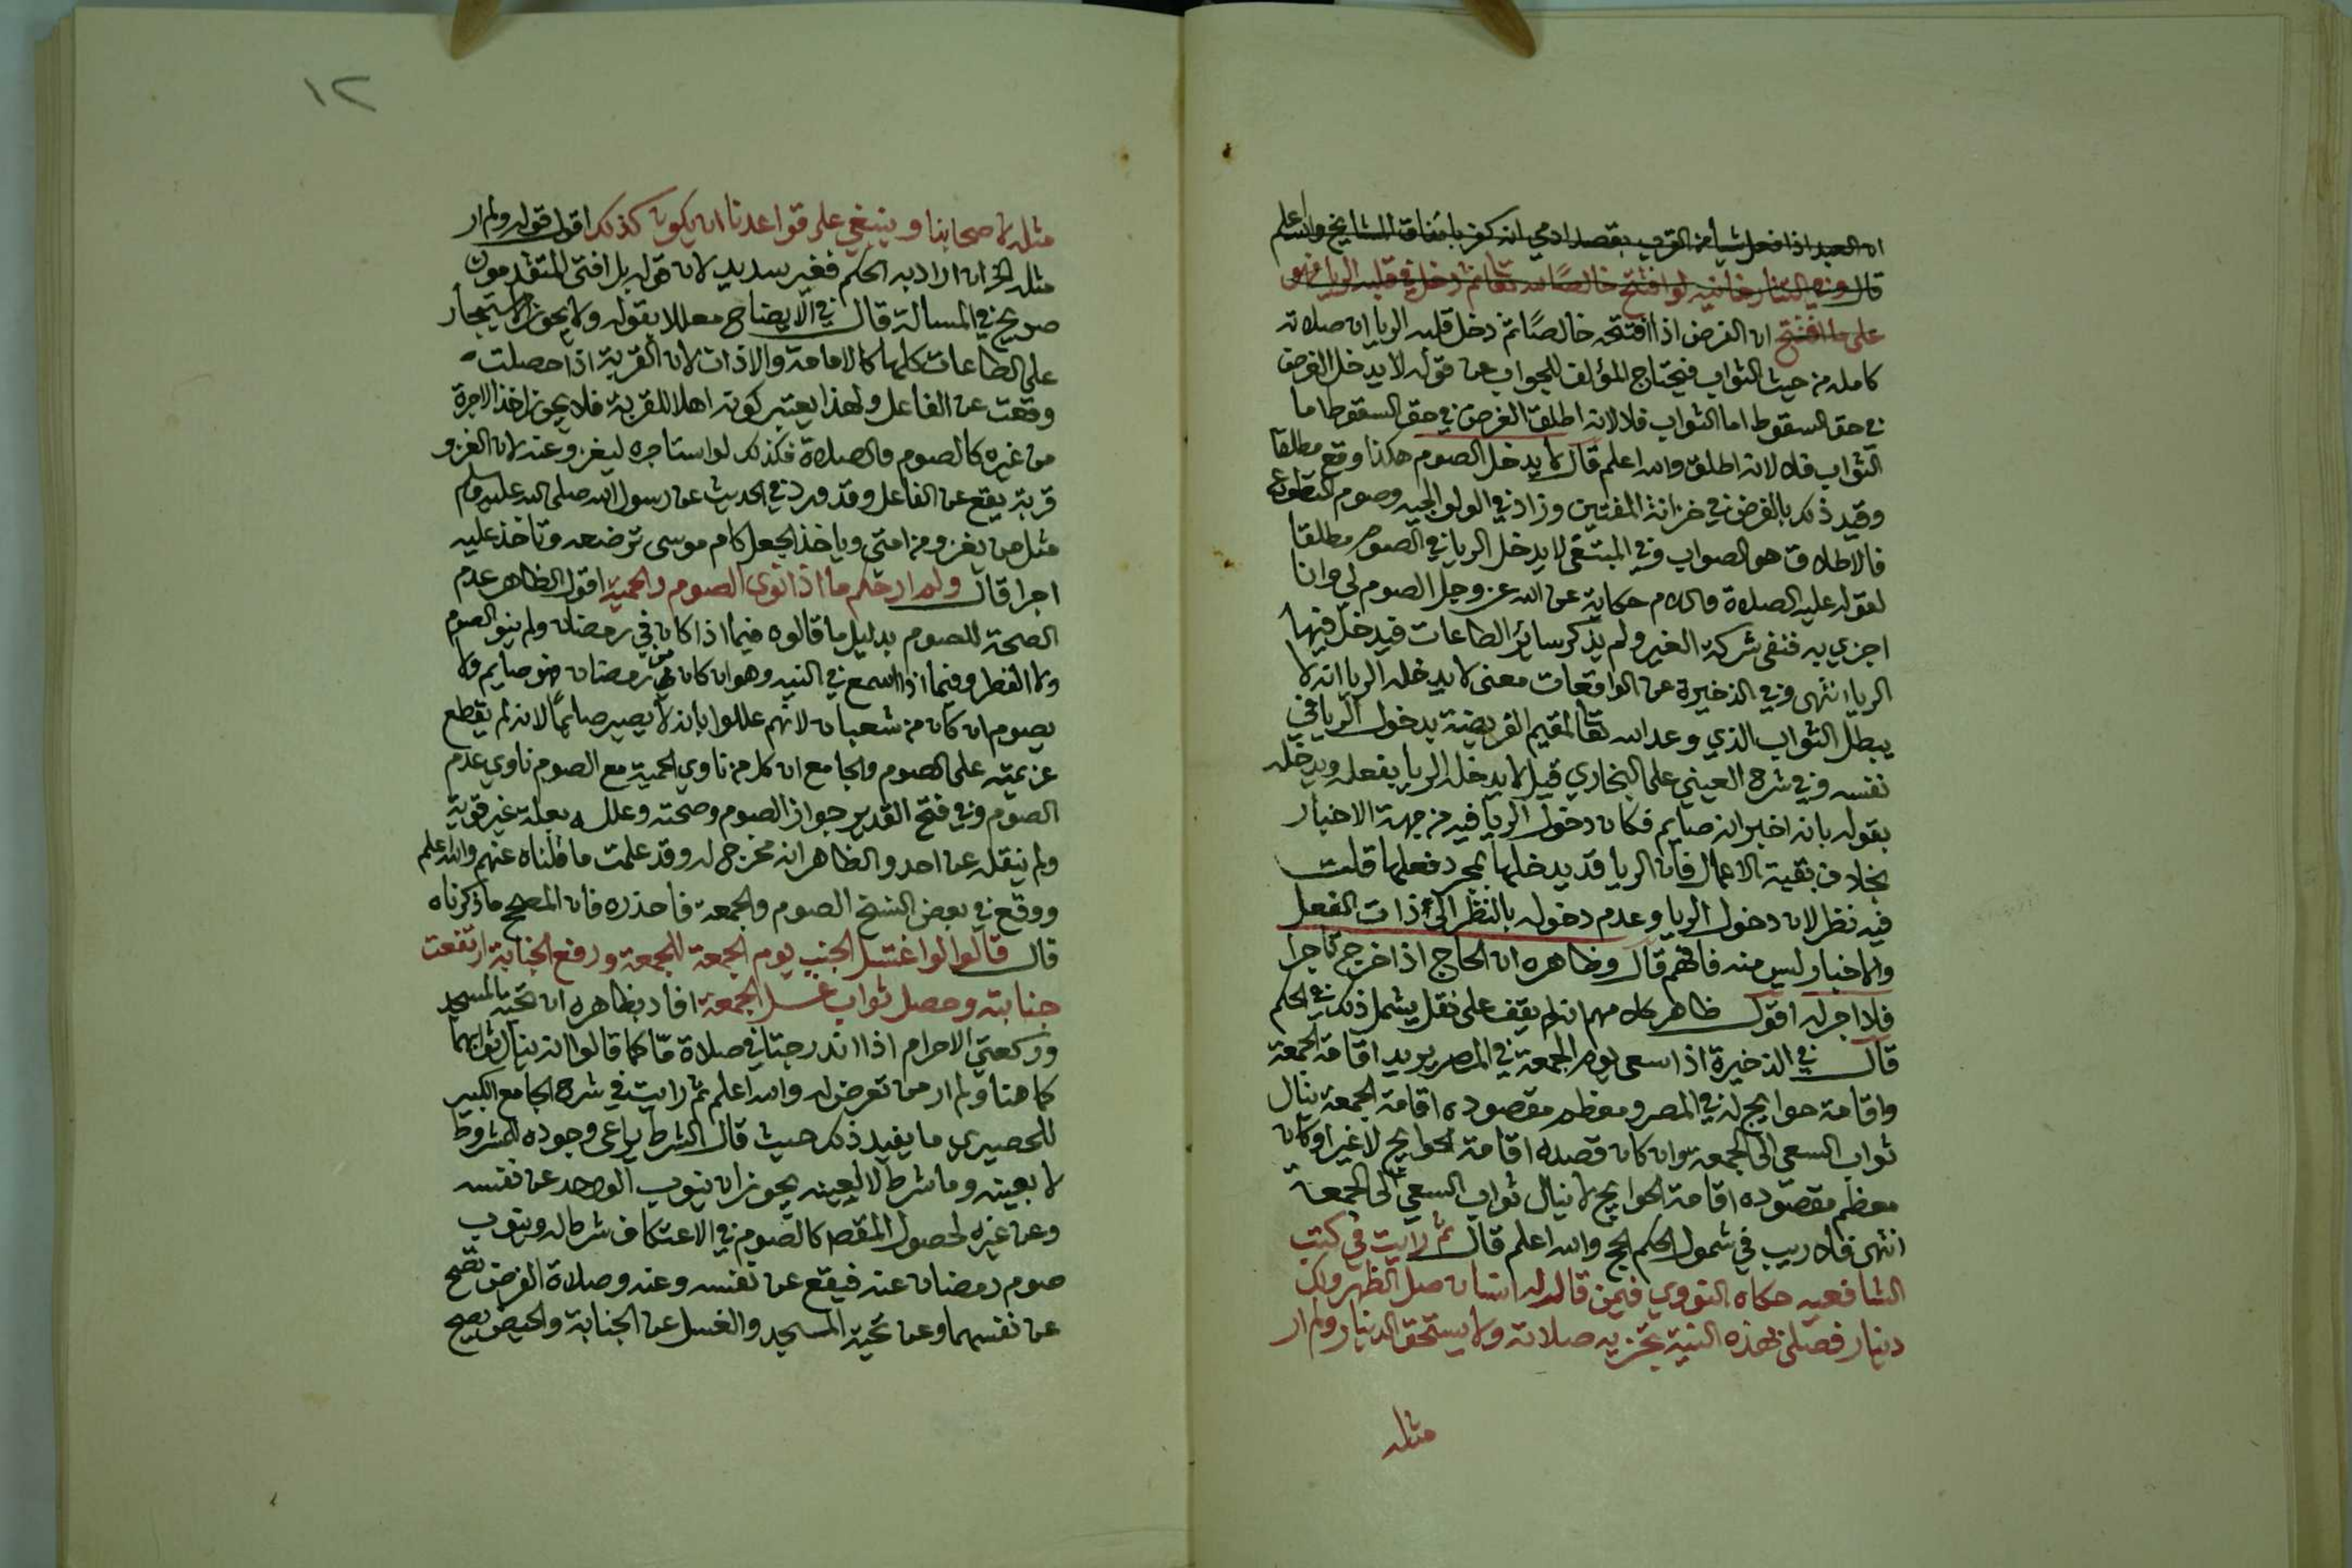 ان العبد اذا فعل شيأ من القرب بقصد ادمي انه كفر باتفاق المشايخ والله اعلم
قال وفي التتارخانيه لو افتتح خالصًا لله تعا ثم دخل في قلبه الريا فهو
على ما افتتح ان الفرض اذا افتتحه خالصًا ثم دخل قلبه الريا ان صلاته
كامله من حيث الثواب فيحتاج المؤلف للجواب عن قوله لا يدخل الفرض
في حق السقوط اما الثواب فلا لانه اطلق الفرض في حق السقوط اما
الثواب فلا لانه اطلق والله اعلم قال لا يدخل الصوم هكذا وقع مطلقا
وقيد ذلك بالفرض في خزانة المفتين وزاد في الولوالجيه وصوم التطوع
فالاطلاق هو الصواب وفي المبتغى لا يدخل الريا في الصوم مطلقا
لقوله عليه الصلاة والسلام حكاية عن الله عز وجل الصوم لي وانا
اجزي به فنفى شركة الغير ولم يذكر سائر الطاعات فيدخل فيها
الريا انتهى وفي الذخيرة عن الواقعات معنى لا يدخله الريا انه لا
يبطل الثواب الذي وعد الله تعا لمقيم الفريضة بدخول الريا في
نفسه وفي شرح العيني على البخاري قيل لا يدخله الريا بفعله ويدخله
بقوله بانه اخبر انه صايم فكان دخول الريا فيه من جهة الاخبار
بخلاف بقية الاعمال فان الريا قد يدخلها بمجرد فعلها قلت
فيه نظر لان دخول الريا وعدم دخوله بالنظر الى ذات الفعل
والاخبار ليس منه فافهم قال وظاهره ان الحاج اذا خرج تاجرا
فلا اجر له اقول ظاهر كلامهم انه لم يقف على نقل يشمل ذلك في الحكم
قال في الذخيرة اذا سعى يوم الجمعة في المصر يريد اقامة الجمعة
واقامة حوايج له في المصر ومعظم مقصوده اقامة الجمعة ينال
ثواب السعي الى الجمعة وان كان قصده اقامة الحوايج لا غير او كان
معظم مقصوده اقامة الحوايج لا ينال ثواب السعي الى الجمعة
انتهى فلا ريب في شمول الحكم الحج والله اعلم قال ثم رايت في كتب
الشافعيه حكاه النووي فيمن قال له انسان صل الظهر ولك
دينار فصلى بهذه النية تجزيه صلاته ولا يستحق الدينار ولم ار
مثله
١٢
مثله لاصحابنا وينبغي على قواعدنا ان يكون كذلك اقول قوله ولم ار
مثله الخ ان اراد به الحكم فغير سديد لان قوله بل افتى المتقدمون
صريح في المسالة قال في الايضاح معللا بقوله ولا يجوز الاستيجار
على الطاعات كلها كالامامة والاذان لان القربة اذا حصلت
وقعت عن الفاعل ولهذا يعتبر كونه اهلا للقربة فلا يجوز اخذ الاجرة
من غيره كالصوم والصلاة فكذلك لو استاجره ليغزو عنه لان الغزو
قربة يقع عن الفاعل وقد ورد في الحديث عن رسول الله صلى الله عليه وسلم
مثل من يغزو من امتي وياخذ الجعل كام موسى ترضعه وتاخذ عليه
اجرا قال ولم ار حكم ما اذا نوى الصوم والحمية اقول الظاهر عدم
الصحة للصوم بدليل ما قالوه فيما اذا كان في رمضان ولم ينو الصوم
ولا الفطر وفيما اذا في النيه وهو ان كان من رمضان فهو صايم ولا
يصوم ان كان من شعبان لانهم عللوا بانه لا يصير صايمًا لانه لم يقطع
عزيمته على الصوم والجامع ان كل من ناوي الحمية مع الصوم ناوي عدم
الصوم وفي فتح القدير جواز الصوم وصحته وعلله بعلة غير قوية
ولم ينقله عن احد والظاهر انه مخرج له وقد علمت ما قلناه عنهم والله اعلم
ووقع في بعض النسخ الصوم والجمعة فاحذره فان المصحح ما ذكرناه
قال قالوا لو اغتسل الجنب يوم الجمعة للجمعة ورفع الجنابة ارتفعت
جنابته وحصل ثواب غسل الجمعة افاد بظاهره ان تحية المسجد
وركعتي الاحرام اذا اندرجتا في صلاة مّا كما قالوا انه ينال ثوابهما
كما هنا ولم ار من تعرض له والله اعلم ثم رايت في شرح الجامع الكبير
للحصيري ما يفيد ذلك حيث قال الشرط يراعى وجوده للمشروط
لا بعينه وما شرط لا لعينه يجوز ان ينوب الواحد عن نفسه
وعن غيره لحصول المقصد كالصوم في الاعتكاف شرط له وينوب
صوم رمضان عنه فيقع عن نفسه وعنه وصلاة الفرض تصح
عن نفسهما وعن تحية المسجد والغسل عن الجنابة والحيض يصح